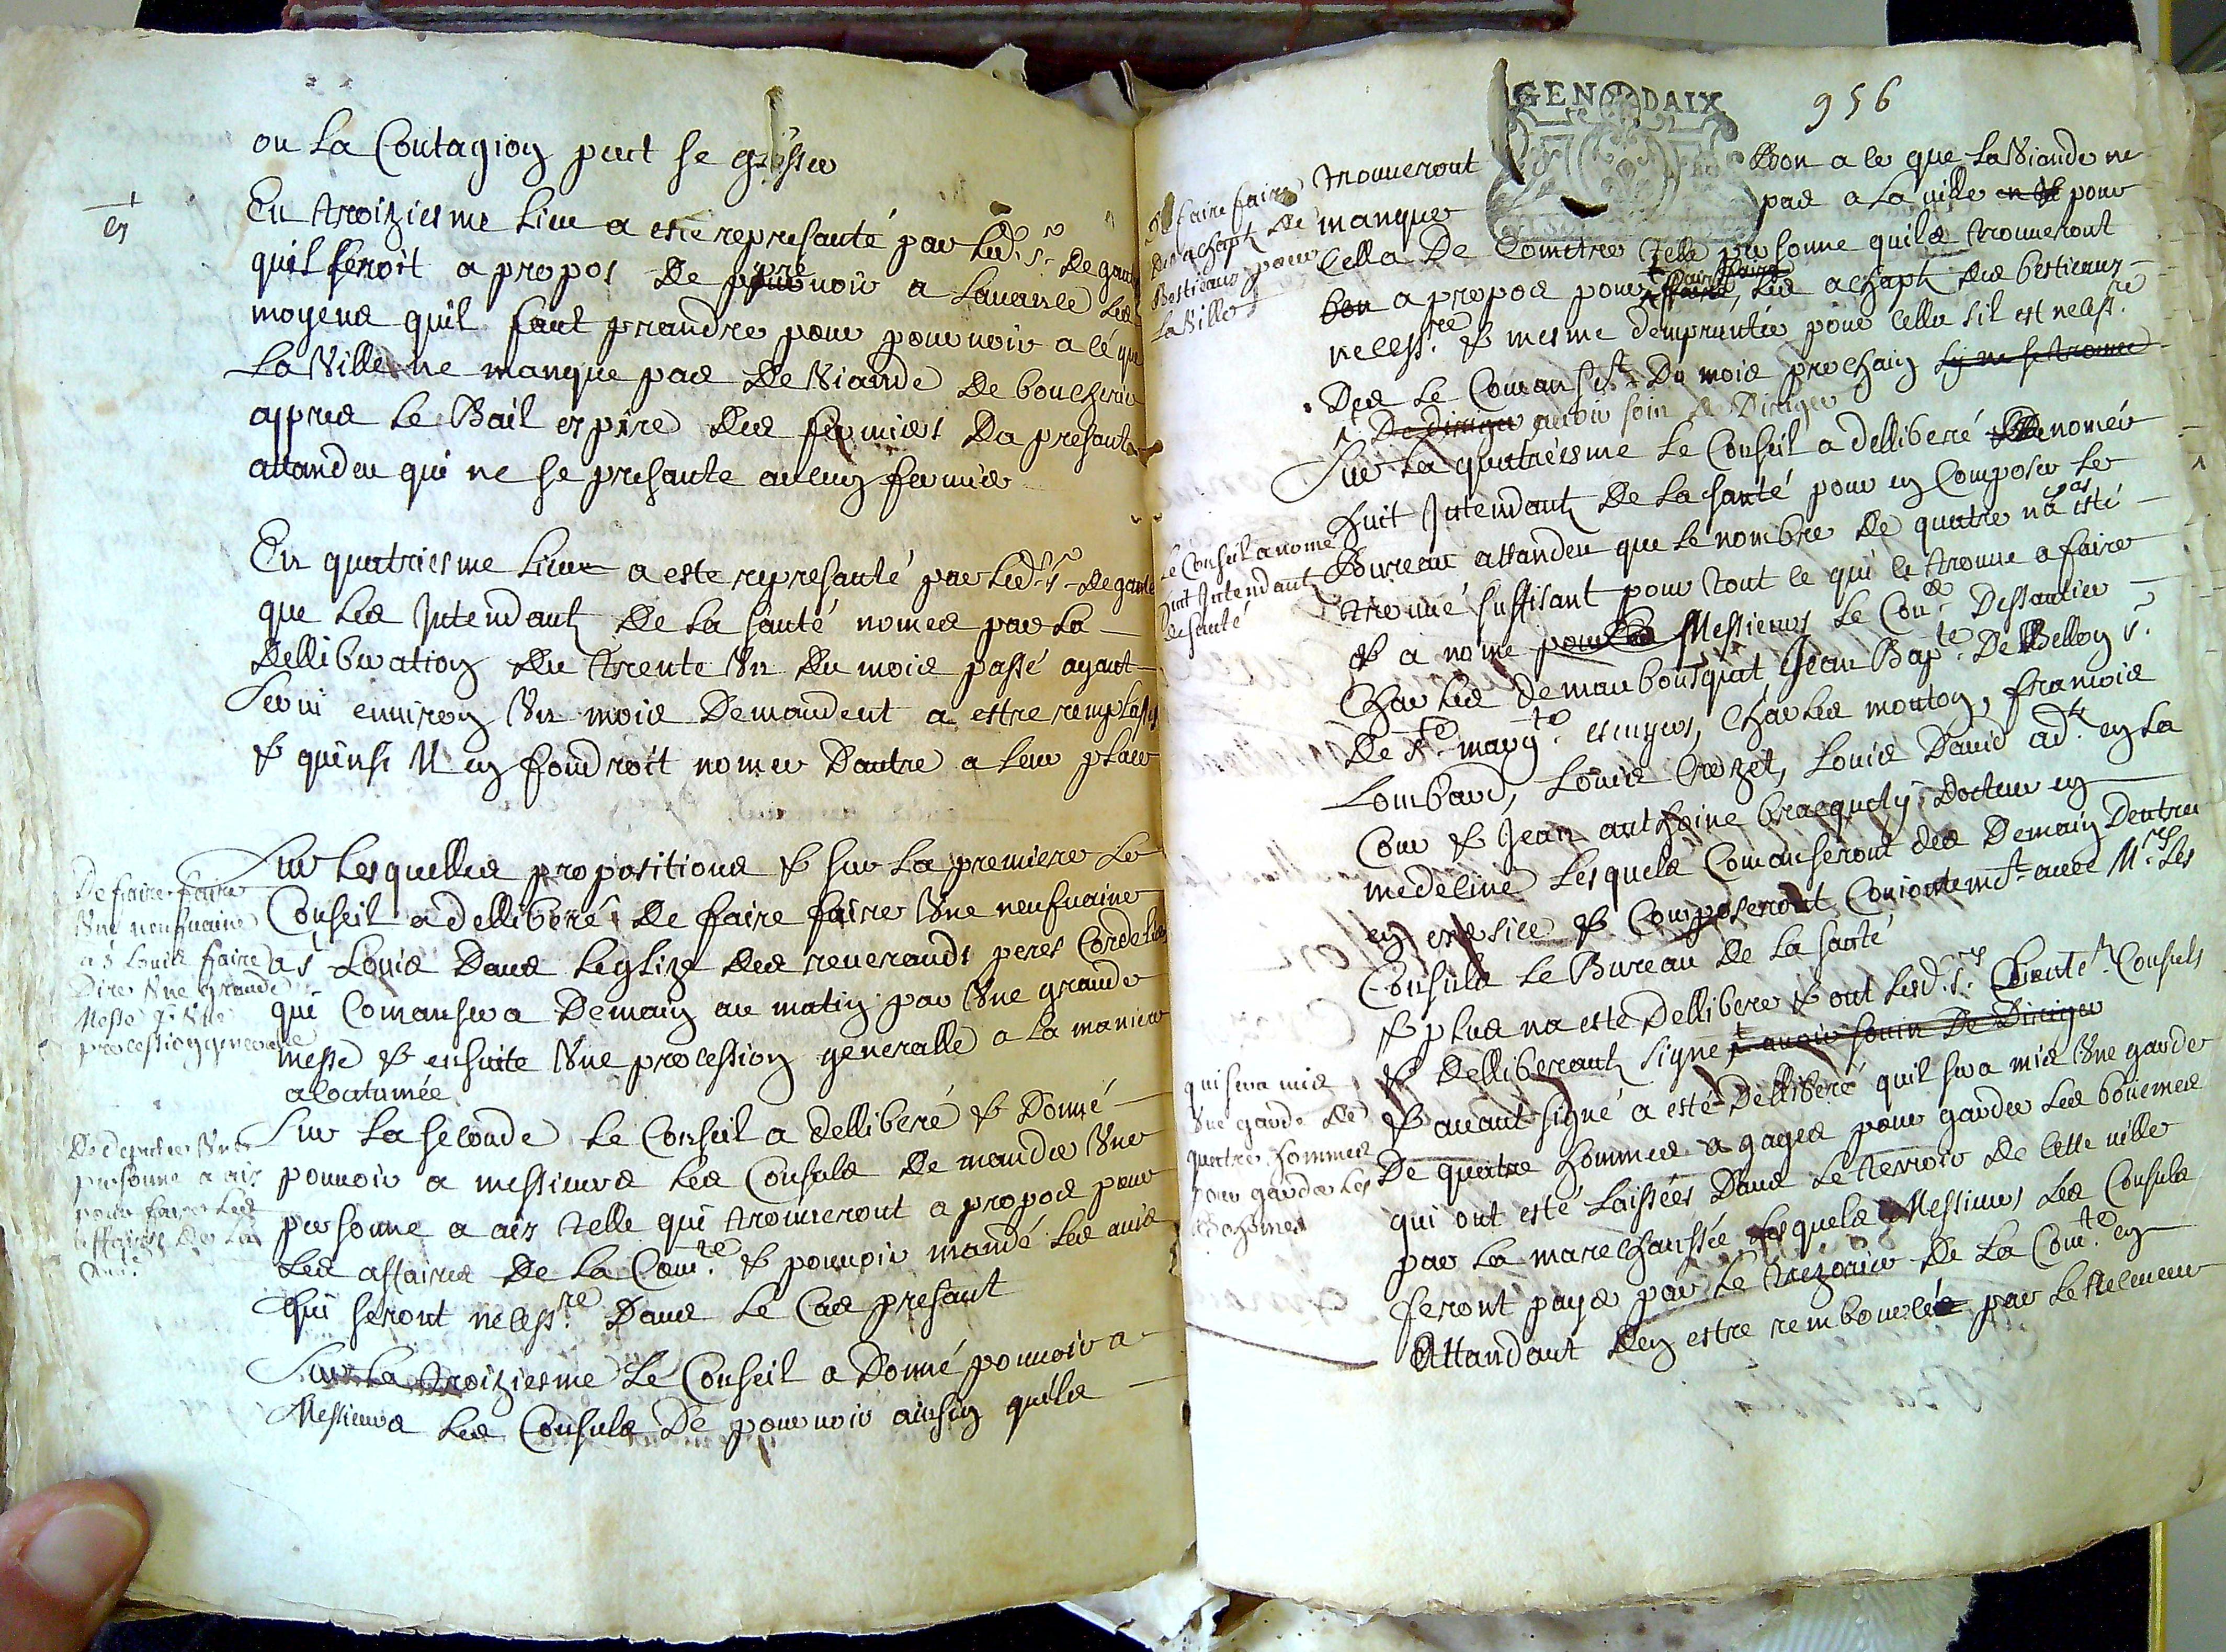 ou la Contagion peut se glisser
En troiziesme lieu a esté represanté par led. sr. de gau
quil seroit a propos de prevoir a lavance les
moyens quil faut prandre pour pourvoir a cé que
la Ville ne manque pas de Viande de boucherie
appres le Bail expiré des fermiers Da presant
attandeu qui ne se presante aucun fermier
En quatriesme lieu a esté represanté par led. sr. de gaut
que les Intendants de la santé nomes par la
Delliberation du trente Un du mois passé ayant
servi environ Un mois Demandent a estre remplasses
& quinsi Il en foudroit nomer Dautre a leur place
De faire faire
Une neufvaine
a St Louis faire
Dire Une grande
Messe & Une
procession generalle
Sur lesquelles propositions & sur la premiere le
Conseil a delliberé de faire faire Une neufvaine
a St Louis Dans leglize des reverands peres Cordeliers
qui Comansera Demain au matin par Une grande
messe & ensuite Une procession generalle a la maniere
acoutumée
De deputer Une
personne a aix
pour faire les
affaires de la
Comté
Sur la seconde le Conseil a delliberé & Donné
pouvoir a messieurs les Consuls de mander Une
personne a aix telle qui trouveront a propos pour
les affaires de la Comté & pouvoir mandé les avis
qui seront necessres Dans le Cas presant
Sur la troiziesme le Conseil a Donné pouvoir a
Messieurs les Consuls de pourvoir ainsin quils
GEN DAIX
956
De faire faire
des achapt de
Bestieaux pour
la Ville
trouveront bon a ce que la Viande ne
manque pas a la ville en & pour
cella De Cometre telle personne quils trouveront
bon a propos pour faire faire les achapt des bestieaux
necessre & mesme dempruntée pour cella sil est necessre
Des le Comansemt Du mois prochain sy ne se trouve
De diriger avoir soin de Diriger
le Conseil a nomé
huit Intendants
de santé
Sur la quatriesme le Conseil a delliberé de nomér
huit Intendants de la santé pour en Composer le
Bureau attandeu que le nombre de quatre na pas esté
trouvé suffisant pour tout ce qui se trouve a faire
& a nomé pour les Messieurs le Con.r Dessautier
Charles de maubousquat Jean Bapte De Bellon sr.
De Ste margte escuyers, Charles mouton, francois
Lombard, Louis Crozet, Louis David adt en la
Cour & Jean anthoine bracquety Docteur en
medecine lesquels Comanseront des Demain Dentrer
en exersice & Composeront Conjointemt avec Mrs les
Consuls le Bureau de la santé
& plus na esté delliberé & ont lesd. srs. Consuls
& delliberants signé & avoir souin de Diriger
qui sera mis
Une garde de
quatre hommes
pour garder les
Bohemes
& avant signé a esté Delliberé quil sera mis Une garde
De quatre hommes a gages pour garder les bouemes
qui ont esté laissées Dans le terroir de cette ville
par la marechaussée lesquels Messieurs les Consuls
seront payés par le trezorier de la Comté en
Attandant den estre remboursés par le